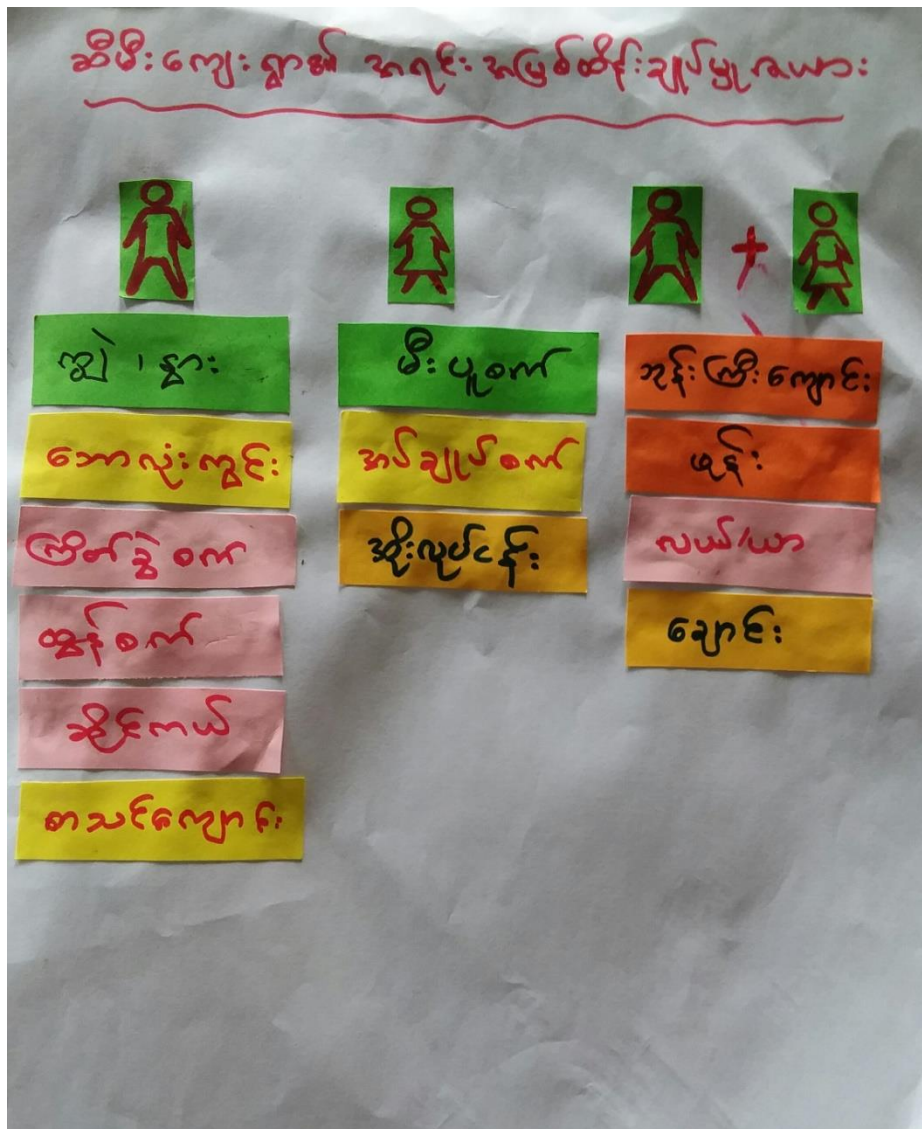 ဆီမီးကျေးရွာ၏ အရင်းအမြစ်ထိန်းချုပ်မှုဇယား
+
ကျွဲ ၊ နွား
ဘောလုံးကွင်း
ကြိတ်ခွဲစက်
ထွန်စက်
ဆိုင်ကယ်
စာသင်ကျောင်း
မီးပူစက်
အပ်ချုပ်စက်
အိုးလုပ်ငန်း
ဘုန်းကြီးကျောင်း
ဖုန်း
လယ်/ယာ
ချောင်း